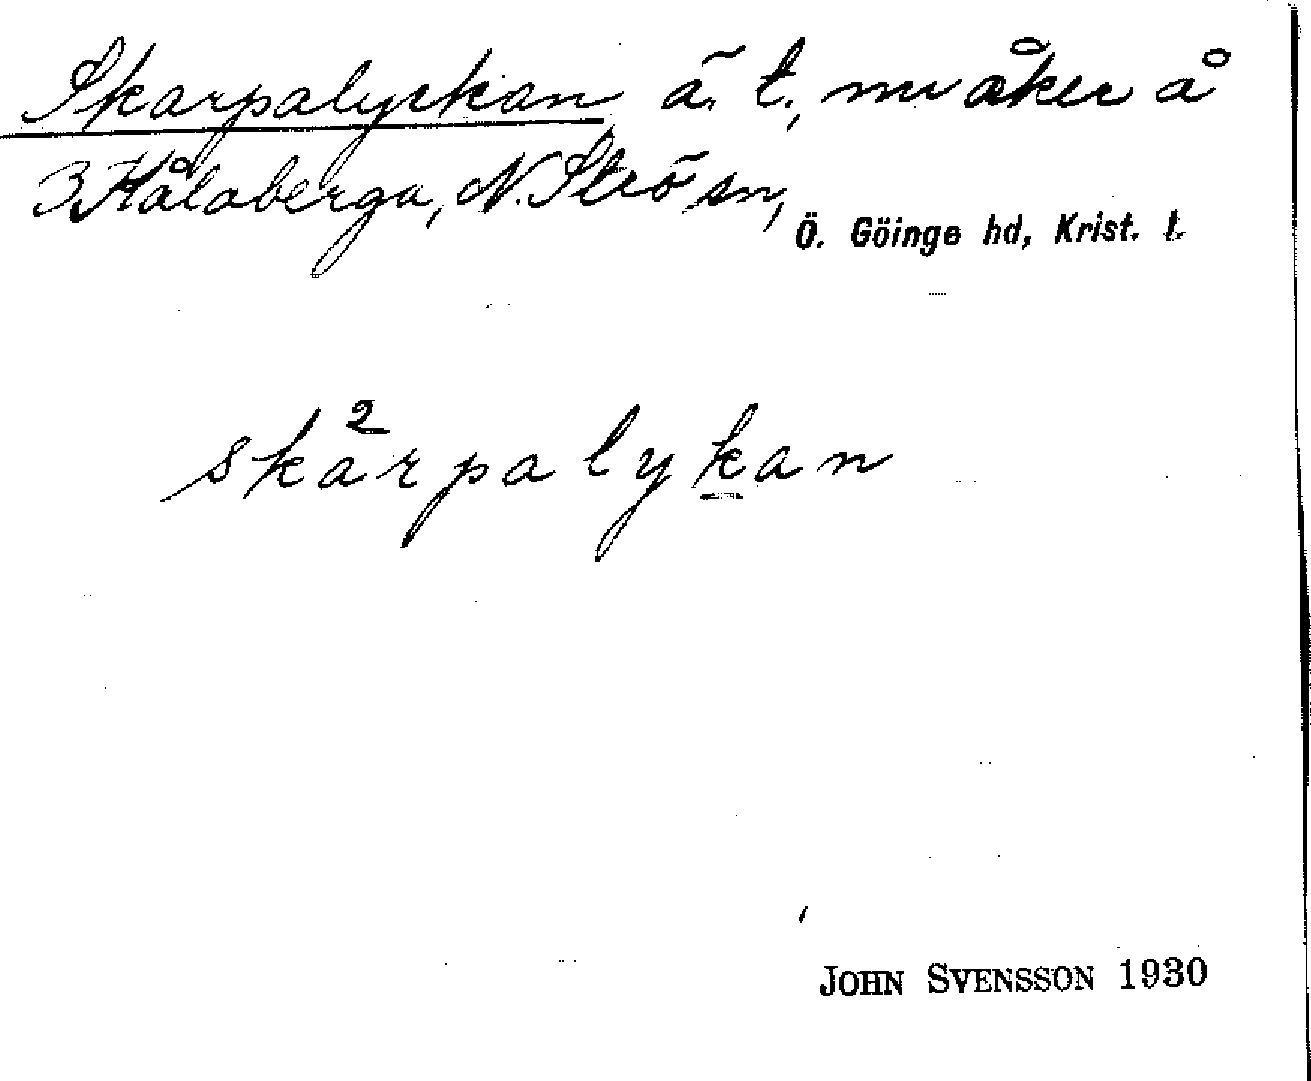 Skarpalyckan ä. t., nu åker å
3 Kålaberga, N. Strö sn,
Ö. Göinge hd, Krist. l.
skȧ²rpalykan
JOHN SVENSSON 1930